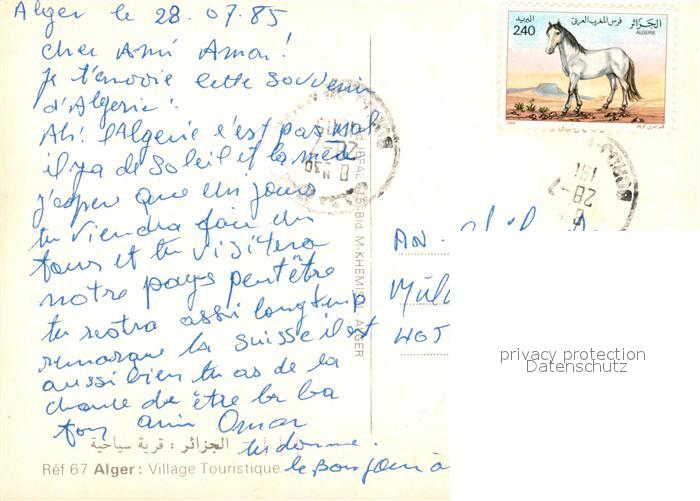 Alger le 28.07.85
cher Ami Amar!
Je t'envoie cette souvenir
d'Algerie.
Ah! l'Algerie c'est pas mal
il ya de soleil et la mer
j'esper que un jours
tu viendra fair un
tours et tu visitera
notre pays peut être
tu restra assi longtemp
remarque la suisse il est
aussi bien tu as de la
chance de être la ba
ton ami Omar
tu donne
le Bonjour à
الجزائر : قرية سياحية
Réf 67 Alger : Village Touristique
5 Bld M-KHEMISTI ALGER
البريد
240
فرس المغرب العربي
الجزائر
ALGERIE
28-7
AN.
405
privacy protection
Datenschutz